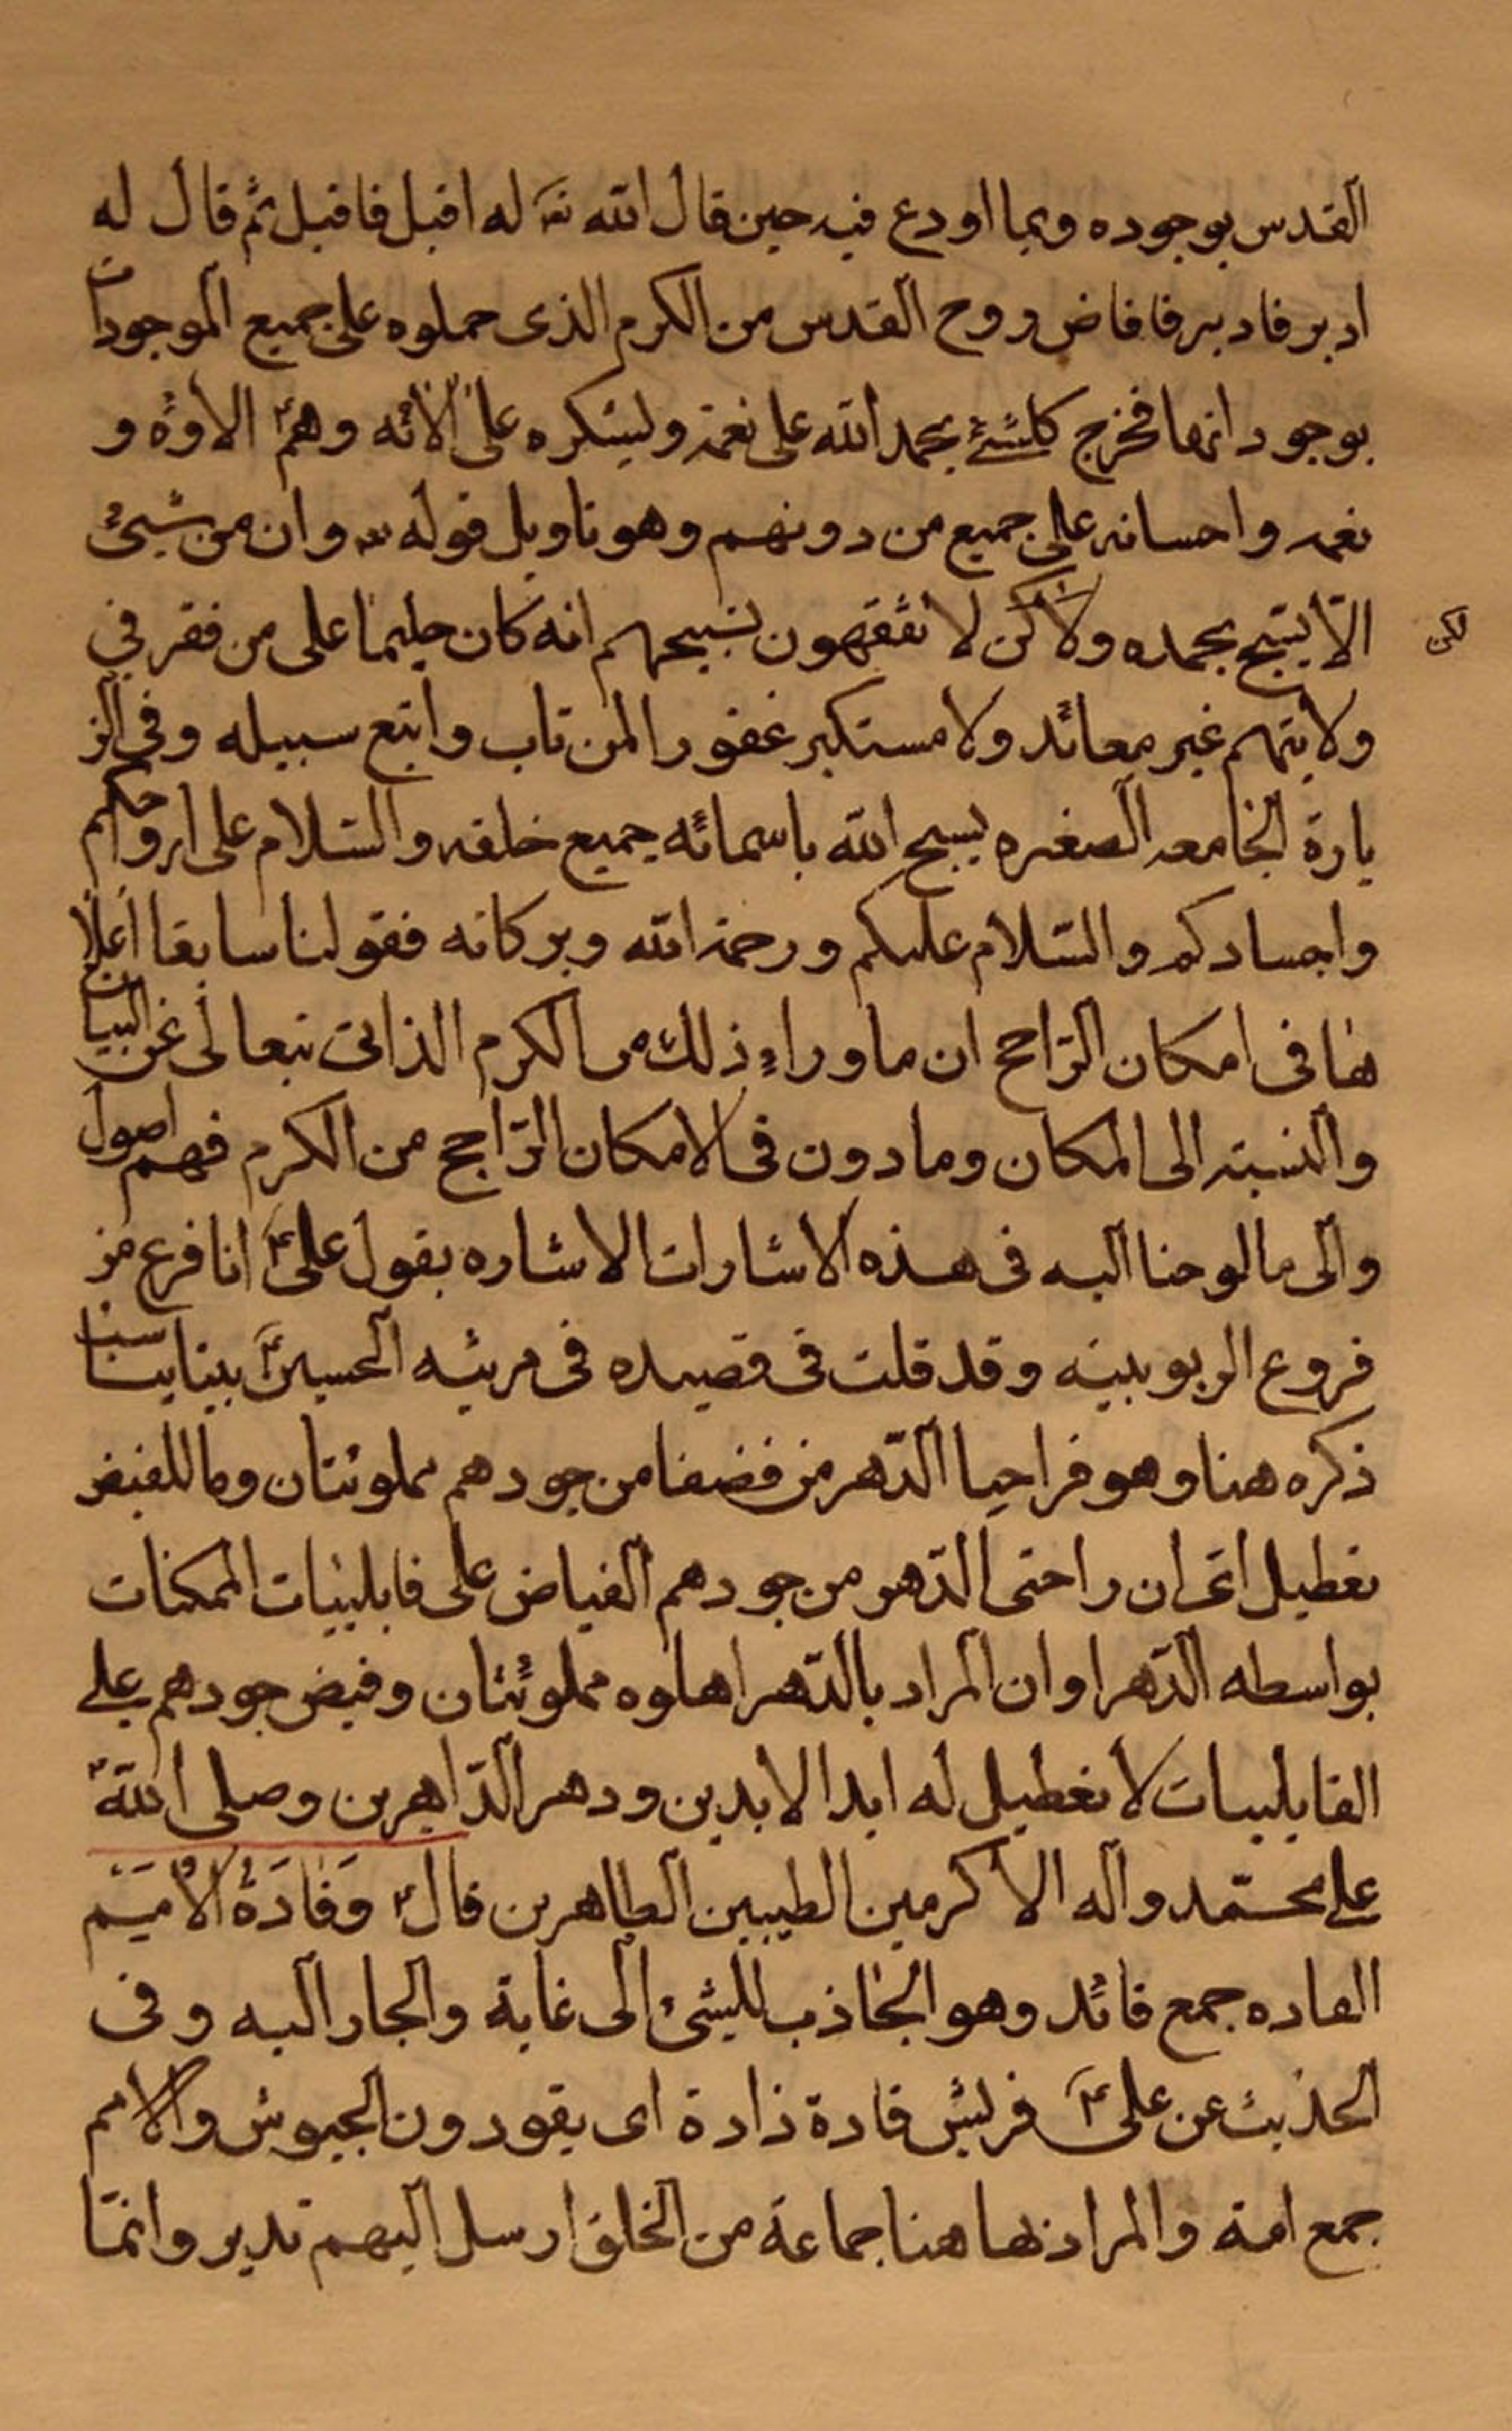 القدس بوجوده وبما اودع فيه حين قال الله تعه له اقبل فاقبل ثم قال له
ادبر فادبر فافاض روح القدس من الكرم الذى حملوه على جميع الموجودات
بوجوداتها فخرج كلشئ بحمد الله على نعمه وليشكره على الائه وهم الاؤه و
نعمه واحسانه على جميع من دونهم وهو تاويل قوله تعه وان من شيئ
الّا يسّبح بحمده ولاكن لا تفقهون تسبيحهم انه كان حليما على من فقر في
لكن
ولايتهم غير معائد ولا مستكبر غفورا لمن تاب واتبع سبيله وفي الز
يارة الجامعه الصغيره يسبح الله باسمائه جميع خلقه والسّلام على ارواحكم
واجسادكم والسّلام عليكم ورحمة الله وبركاته فقولنا سابقا اعلا
ها فى امكان الرّاجح ان ما وراء ذلك من الكرم الذاتى تتعالى عن البيان
والنسبته الى المكان وما دون فى الامكان الرّاجح من الكرم فهم اصول
والى ما لوحنا اليه فى هذه الاشارات الاشاره بقول علىؑ انا فرع من
فروع الربوبيته وقد قلت فى قصيده فى مرثيه الحسينؑ بيتا يناسب
ذكره هنا وهو فراحيا الدّهر من فضفا من جودهم مملوئتان وما للفيض
تعطيل اى ان راحتى الدّهر من جودهم الفياض على قابلييات الممكنات
بواسطه الدّهر او ان المراد بالدّهر اهلوه مملوئتان وفيض جودهم على
القابلييات لا تعطيل له ابد الابدين ودهر الدّاهرين وصلى الله
على محمّد وآله الاكرمين الطيبين الطاهرين قالؑ وَقَادَةُ الْاُمَمِ
القاده جمع قائد وهو الجاذب للشئ الى غاية والجار اليه وفى
الحديث عن علىؑ قريش قادة ذادة اى يقودون الجيوش والامم
جمع امة والمراد بها هنا جماعة من الخلق ارسل اليهم نذير وانمّا